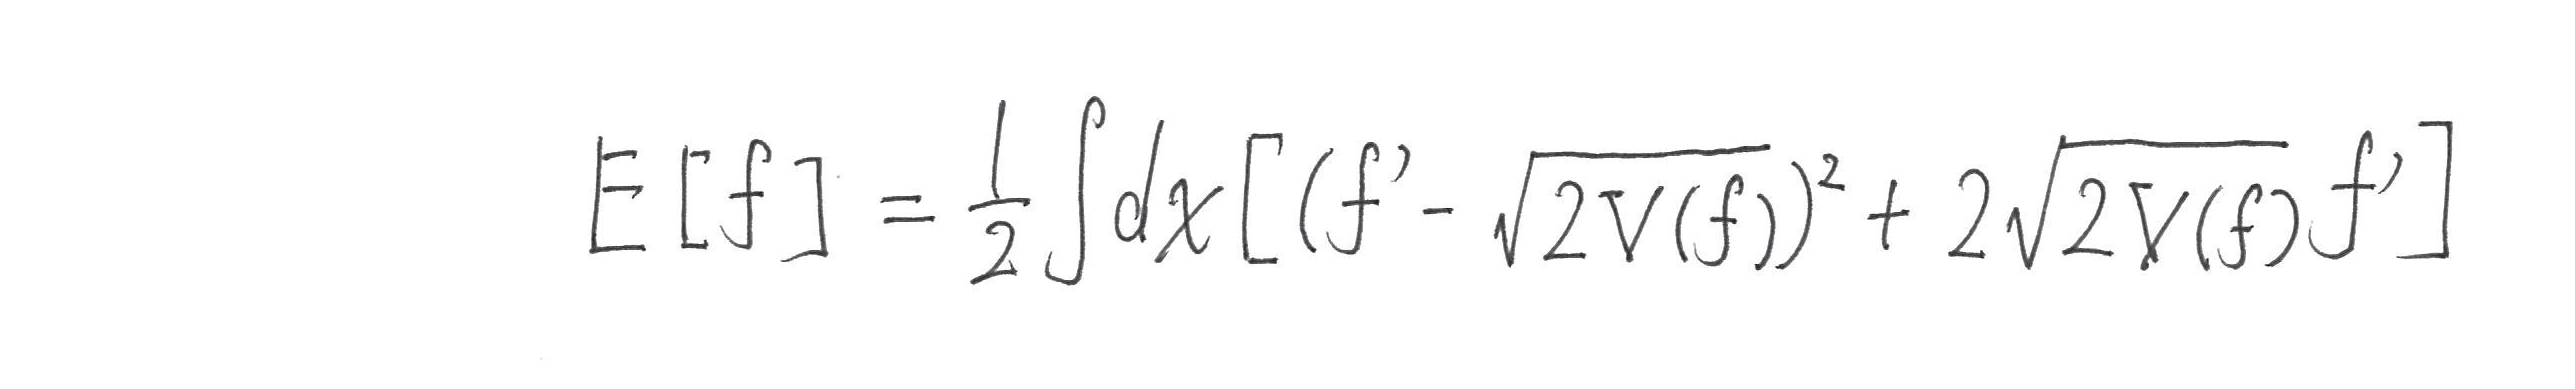 E[f] = \frac{1}{2} \int dx [ (f' - \sqrt{2V(f)})^2 + 2\sqrt{2V(f)} f' ]